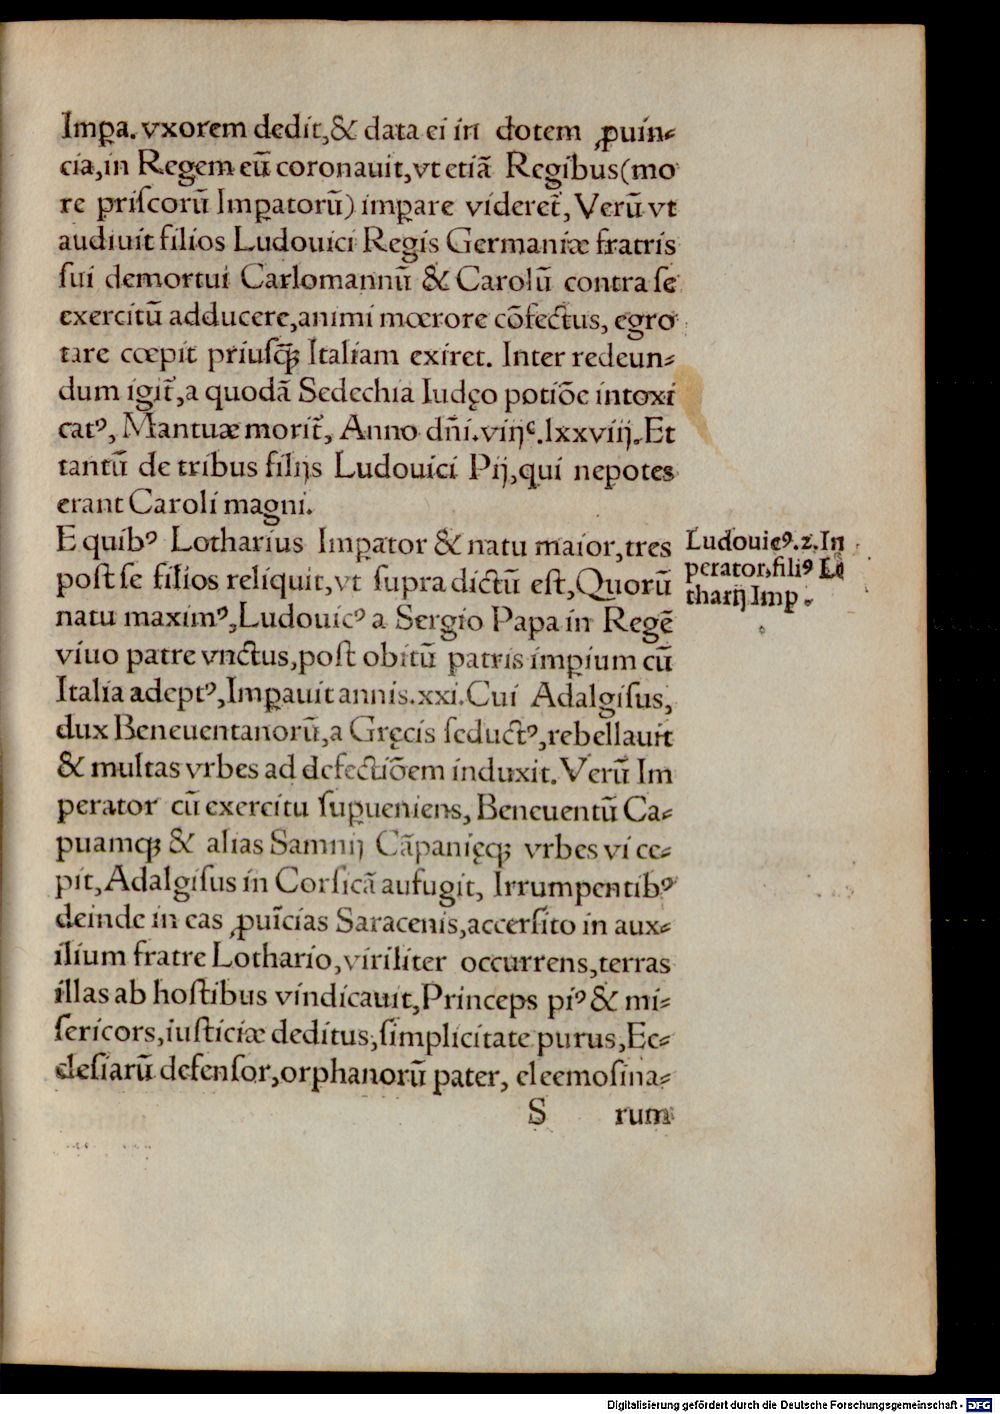 Impa. vxorem dedit,& data ei in dotem ꝓuin⸗
cia,in Regem eū coronauit,vt etiā Regibus(mo
re priſcorū Imꝑatorū) imꝑare videret̄, Verū vt
audiuit filios Ludouici Regis Germaniæ fratris
ſui demortui Carlomannū & Carolū contra ſe
exercitū adducere,animi mœrore cōfectus, egro
tare cœpit priuſꝙ Italiam exiret. Inter redeun⸗
dum igit̄,a quodā Sedechia Iudęo potiōe intoxi
catꝰ, Mantuæ morit̄, Anno dn̄i.viijᶜ.lxxviij. Et
tantū de tribus filijs Ludouici Pij,qui nepotes
erant Caroli magni.
E quibꝰ Lotharius Imꝑator & natu maior,tres
poſt ſe filios reliquit,vt ſupra dictū eſt,Quorū
natu maximꝰ,Ludouicꝰ a Sergio Papa in Regē
viuo patre vnctus,poſt obitū patris imꝑium cū
Italia adeptꝰ,Imꝑauit annis.xxi.Cui Adalgiſus,
dux Beneuentanorū,a Gręcis ſeductꝰ,rebellauit
& multas vrbes ad defectiōem induxit. Verū Im
perator cū exercitu ſuꝑueniens, Beneuentū Ca⸗
puamqꝫ & alias Samnij Cāpanięqꝫ vrbes vi ce⸗
pit,Adalgiſus in Corſicā aufugit, Irrumpentibꝰ
deinde in eas ꝓuīcias Saracenis,accerſito in aux⸗
ilium fratre Lothario,viriliter occurrens,terras
illas ab hoſtibus vindicauit,Princeps piꝰ & mi⸗
ſericors,iuſticiæ deditus,ſimplicitate purus,Ec⸗
cleſiarū defenſor,orphanorū pater, eleemoſina⸗
S rum
Ludouicꝰ.2.Im
perator,filiꝰ Lo
tharij Imp.
Digitalisierung gefördert durch die Deutsche Forschungsgemeinschaft - DFG